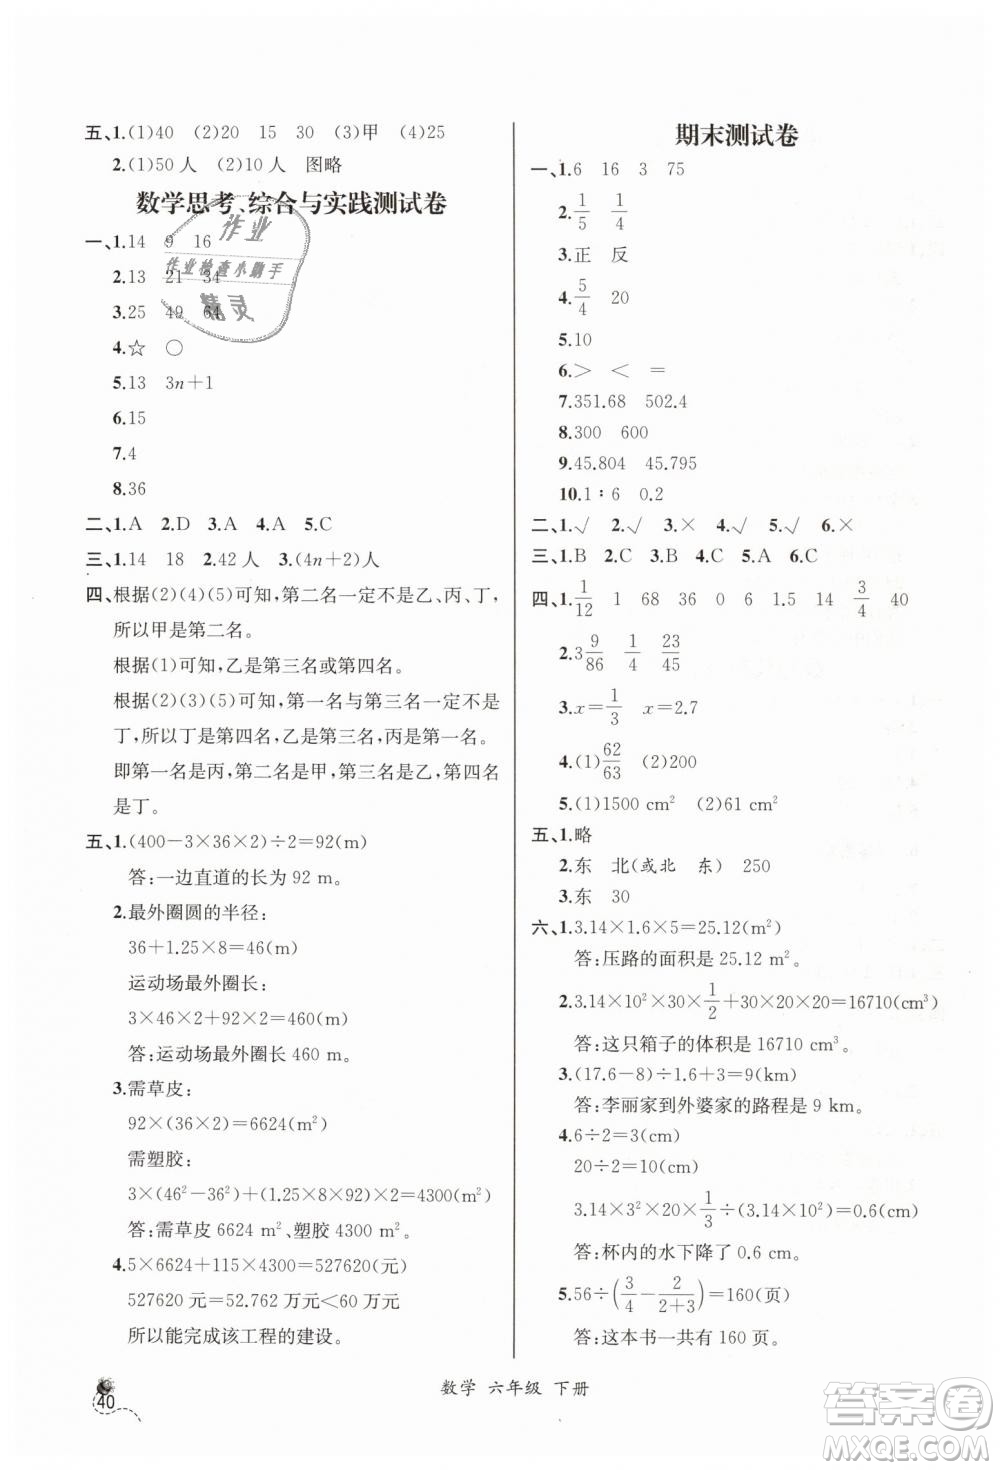 五、1.(1)40 (2)20 15 30 (3)甲 (4)25
2.(1)50人 (2)10人 图略
数学思考、综合与实践测试卷
一、1.14 9 16
2.13 21 34
3.25 49 64
4.☆ ○
5.13 3n+1
6.15
7.4
8.36
二、1.A 2.D 3.A 4.A 5.C
三、1.14 18 2.42人 3.(4n+2)人
四、根据(2)(4)(5)可知,第二名一定不是乙、丙、丁,
所以甲是第二名。
根据(1)可知,乙是第三名或第四名。
根据(2)(3)(5)可知,第一名与第三名一定不是
丁,所以丁是第四名,乙是第三名,丙是第一名。
即第一名是丙,第二名是甲,第三名是乙,第四名
是丁。
五、1.(400-3×36×2)÷2=92(m)
答:一边直道的长为92 m。
2.最外圈圆的半径:
36+1.25×8=46(m)
运动场最外圈长:
3×46×2+92×2=460(m)
答:运动场最外圈长460 m。
3.需草皮:
92×(36×2)=6624(m²)
需塑胶:
3×(46²-36²)+(1.25×8×92)×2=4300(m²)
答:需草皮6624 m²、塑胶4300 m²。
4.5×6624+115×4300=527620(元)
527620元=52.762万元<60万元
所以能完成该工程的建设。
作业
作业检查小助手
精灵
期末测试卷
一、1.6 16 3 75
2.1/5 1/4
3.正 反
4.5/4 20
5.10
6.> < =
7.351.68 502.4
8.300 600
9.45.804 45.795
10.1∶6 0.2
二、1.√ 2.√ 3.× 4.√ 5.√ 6.×
三、1.B 2.C 3.B 4.C 5.A 6.C
四、1.1/12 1 68 36 0 6 1.5 14 3/4 40
2.3 9/86 1/4 23/45
3.x=1/3 x=2.7
4.(1)62/63 (2)200
5.(1)1500 cm² (2)61 cm²
五、1.略
2.东 北(或北 东) 250
3.东 30
六、1.3.14×1.6×5=25.12(m²)
答:压路的面积是25.12 m²。
2.3.14×10²×30×1/2+30×20×20=16710(cm³)
答:这只箱子的体积是16710 cm³。
3.(17.6-8)÷1.6+3=9(km)
答:李丽家到外婆家的路程是9 km。
4.6÷2=3(cm)
20÷2=10(cm)
3.14×3²×20×1/3÷(3.14×10²)=0.6(cm)
答:杯内的水下降了0.6 cm。
5.56÷(3/4-2/(2+3))=160(页)
答:这本书一共有160页。
40
数学 六年级 下册
答案圈
MXQE.COM